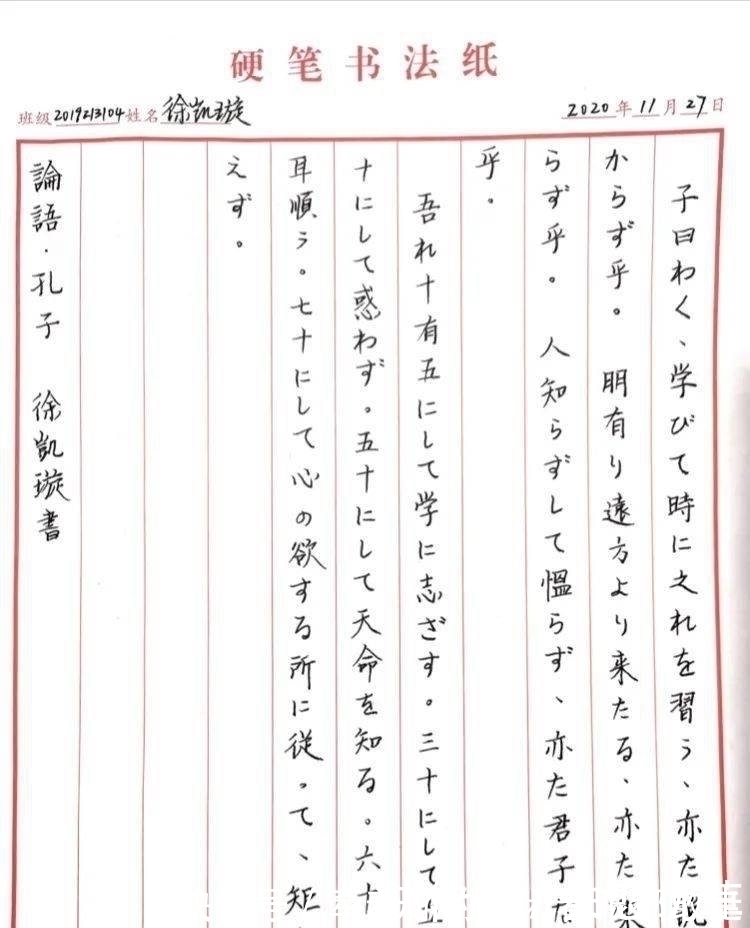 硬笔书法纸
班级 2019213104 姓名 徐凯璇 2020 年 11 月 27 日
子曰わく、学びて時に之れを習う、亦た説
からず乎。 朋有り遠方より来たる、亦た
らず乎。 人知らずして慍らず、亦た君子た
乎。
吾れ十有五にして学に志ざす。三十にして立
十にして惑わず。五十にして天命を知る。六十
耳順う。七十にして心の欲する所に従って、矩
えず。
論語·孔子 徐凱璇書